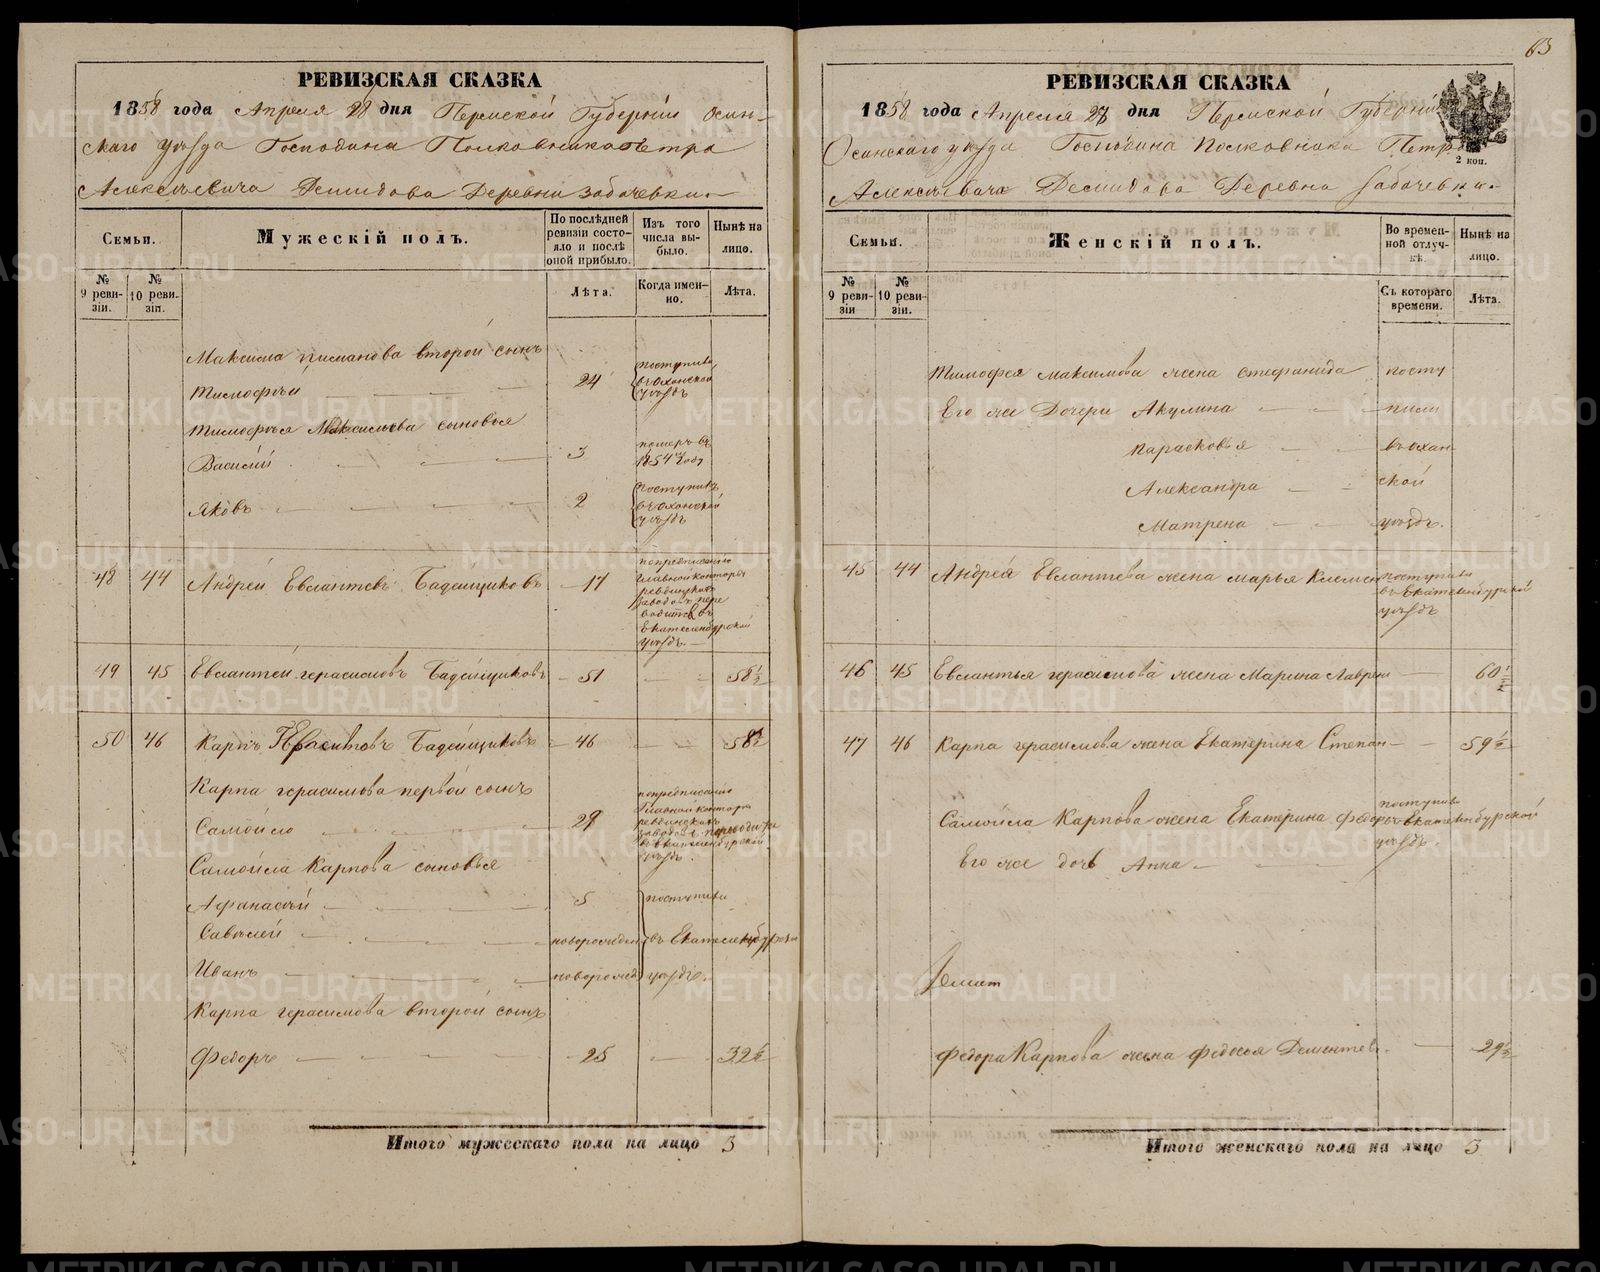 63
РЕВИЗСКАЯ СКАЗКА
1858 года Апреля 28 дня Пермской Губернiи Осин-
скаго уѣзда Господина Полковника Петра
Алексѣевича Демидова Деревни
Семьи.
Мужескiй полъ.
По послѣдней ревизiи состо-
яло и послѣ оной прибыло.
Изъ того числа вы-
было.
Нынѣ на лицо.
№ 9 реви-
зiи.
№ 10 реви-
зiи.
Лѣта.
Когда имен-
но.
Лѣта.
Максима второй сынъ
Тимофѣй 24 поступилъ въ Оханской уѣздъ
Тимофѣя Максимова сыновья
Василiй 3 померъ въ 1854 году
Яковъ 2 поступилъ въ Оханской уѣздъ
48 44 Андрей Евлантевъ Бадейщиковъ 17
по предписанiю
главной конторы
ревдинскихъ
заводовъ пере
водится въ
Екатеринбургской
уѣздъ.
49 45 Евлантей герасимовъ Бадейщиковъ 51 58½
50 46 Карпъ Герасимовъ Бадейщиковъ 46
Карпа герасимова первой сынъ
Самойло 29
по предписанiю
Главной конторы
ревдинскихъ
заводовъ переводится
въ Екатеринбургской
уѣздъ.
Самойла Карпова сыновья
Афанасѣй 5 поступили
Савѣлей новорожден въ Екатеринбургской
Иванъ новорожд уѣздъ.
Карпа герасимова второй сынъ
Федоръ 25 32½
Итого мужескаго пола на лицо 3
РЕВИЗСКАЯ СКАЗКА
1858 года Апреля 28 дня Пермской Губернiи
Осинскаго уѣзда Господина Полковника Петра
Алексѣевича Демидова Деревни
2 коп.
Семьи.
Женскiй полъ.
Во времен-
ной отлуч-
кѣ.
Нынѣ на лицо.
№ 9 реви-
зiи
№ 10 реви-
зiи.
Съ котораго времени.
Лѣта.
Тимофея Максимова жена Стефанида посту
Его же Дочери Акулина пили
Парасковья въ Охан
Александра ской
Матрена уѣздъ.
45 44 Андрея Евлантева жена Марья Клемен поступила
въ Екатеринбургской
уѣздъ
46 45 Евлантья герасимова жена Марина Лаврен 60½
47 46 Карпа герасимова жена Екатерина Степан 59½
Самойла Карпова жена Екатерина Федор поступила
въ Екатеринбургской
уѣздъ.
Его же дочь Анна
Федора Карпова жена Федосья Дементев. 29½
Итого женскаго пола на лицо 3
METRIKI.GASO-URAL.RU